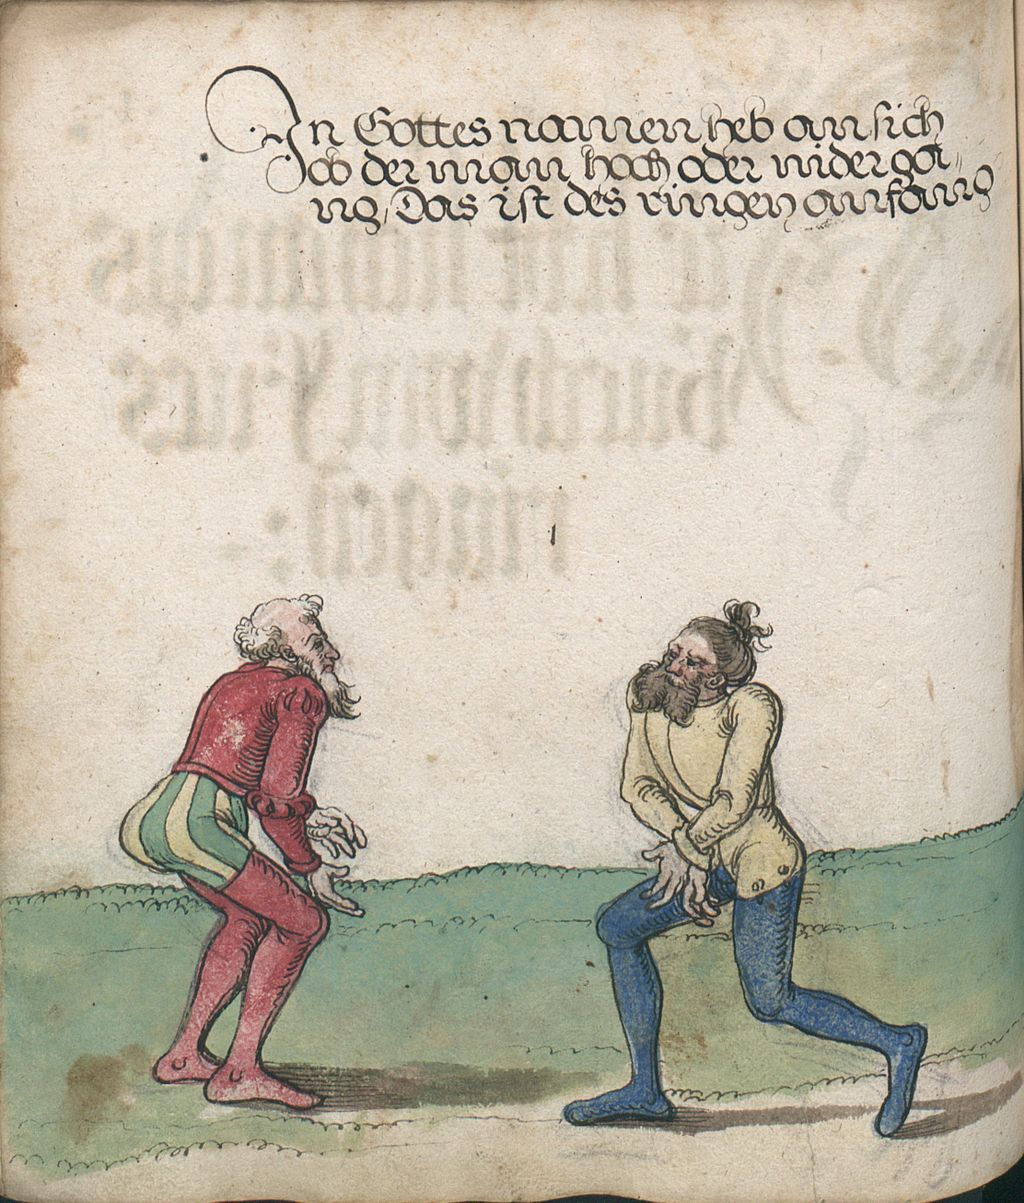 In Gottes namen heb an sich
ob der man hoch oder nider ga„
ng, Das ist des ringen anfang